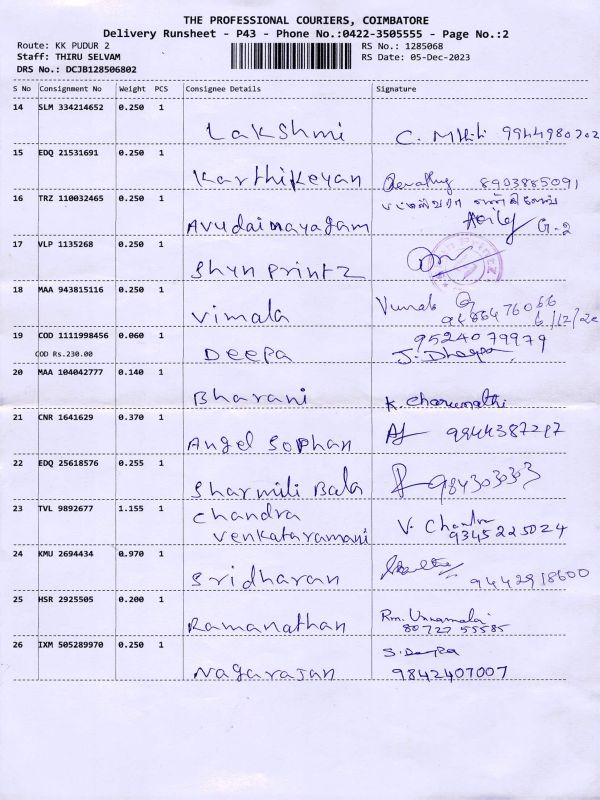 THE PROFESSIONAL COURIERS, COIMBATORE
Delivery Runsheet - P43 - Phone No.:0422-3505555 - Page No.:2
Route: KK PUDUR 2 RS No.: 1285068
Staff: THIRU SELVAM RS Date: 05-Dec-2023
DRS No.: DCJB128506802
S No Consignment No Weight PCS Consignee Details Signature
14 SLM 334214652 0.250 1
Lakshmi C. 9944980702
15 EDQ 21531691 0.250 1
Karthikeyan 8903885091
16 TRZ 110032465 0.250 1
Avudainayagam G-2
17 VLP 1135268 0.250 1
Shyn printz
18 MAA 943815116 0.250 1
Vimala 9486476066
19 COD 1111998456 0.060 1 9524079979
COD Rs.230.00 Deepa J.
20 MAA 104042777 0.140 1
Bharani K. Charumathi
21 CNR 1641629 0.370 1
Angel Sophan 9944387297
22 EDQ 25618576 0.255 1
Sharmili Bala 984303303
23 TVL 9892677 1.155 1
Chandra V. Chandra
Venkataramani 9345225024
24 KMU 2694434 0.970 1
Sridharan 9442918600
25 HSR 2925505 0.200 1
Ramanathan Rm. Unnamalai
80727 55585
26 IXM 505289970 0.250 1 S. Deepa
Nagarajan 9842407007